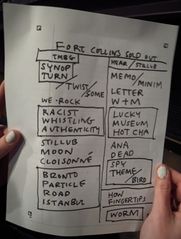 FORT COLLINS SOLD OUT
TMBG
SYNOP
TURN
/TWIST/
SOME
WE-ROCK
RACIST
WHISTLING
AUTHENTICITY
STILLUB
MOON
CLOISONNÉ
BRONTO
PARTICLE
ROAD
ISTANBUL
HEAR/STILLUB
MEMO/
MINIM
LETTER
W+M
LUCKY
MUSEUM
HOT CHA
ANA
DEAD
SPY
THEME/
BIRD
HOW
FINGERTIPS
WORM